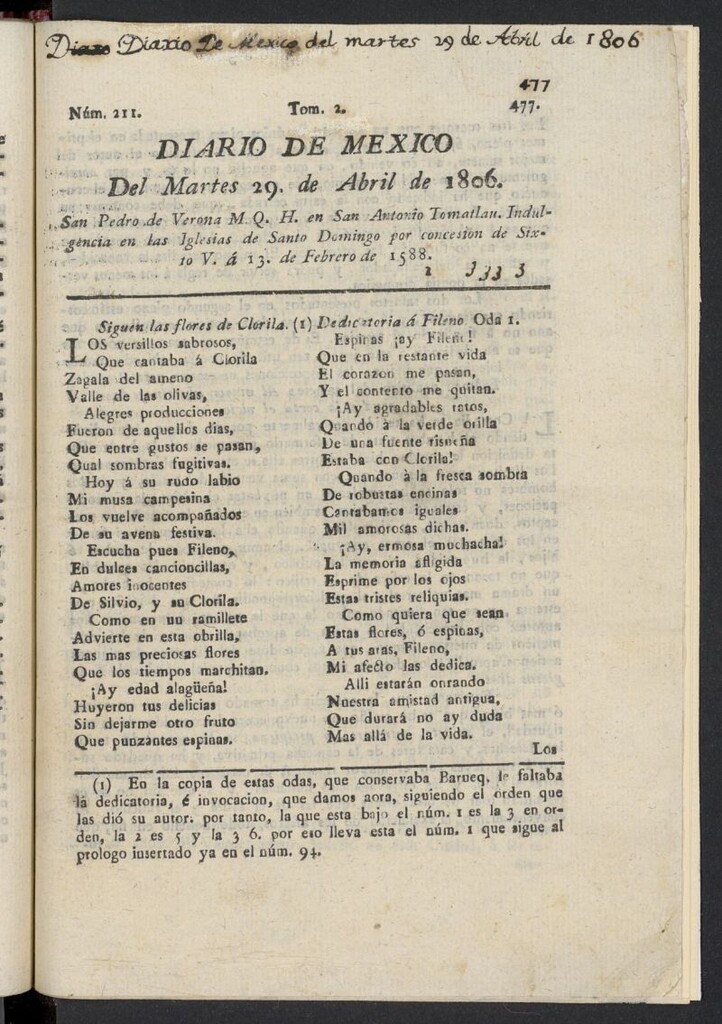 Diario Diario De Mexico del martes 29 de Abril de 1806
477
Núm. 211. Tom. 2. 477.
DIARIO DE MEXICO
Del Martes 29. de Abril de 1806.
San Pedro de Verona M. Q. H. en San Antonio Tomatlau. Indul-
gencia en las Iglesias de Santo Domingo por concesion de Six-
to V. á 13. de Febrero de 1588.
2 3 3 3 3
Siguen las flores de Clorila. (1) Dedicatoria á Fileno Oda 1.
LOS versillos sabrosos,
Que cantaba á Clorila
Zagala del ameno
Valle de las olivas,
Alegres producciones
Fueron de aquellos dias,
Que entre gustos se pasan,
Qual sombras fugitivas.
Hoy á su rudo labio
Mi musa campesina
Los vuelve acompañados
De su avena festiva.
Escucha pues Fileno,
En dulces cancioncillas,
Amores inocentes
De Silvio, y su Clorila.
Como en un ramillete
Advierte en esta obrilla,
Las mas preciosas flores
Que los tiempos marchitan.
¡Ay edad alagüeña!
Huyeron tus delicias
Sin dejarme otro fruto
Que punzantes espinas.
Espinas ¡ay Fileno!
Que en la restante vida
El corazon me pasan,
Y el contento me quitan.
¡Ay agradables ratos,
Quando à la verde orilla
De una fuente risueña
Estaba con Clorila!
Quando à la fresca sombra
De robustas encinas
Cantabamos iguales
Mil amorosas dichas.
¡Ay, ermosa muchacha!
La memoria afligida
Esprime por los ojos
Estas tristes reliquias.
Como quiera que sean
Estas flores, ó espinas,
A tus aras, Fileno,
Mi afecto las dedica.
Alli estarán onrando
Nuestra amistad antigua,
Que durará no ay duda
Mas allá de la vida.
Los
(1) En la copia de estas odas, que conservaba Barueq. le faltaba
la dedicatoria, é invocacion, que damos aora, siguiendo el orden que
las dió su autor: por tanto, la que esta bajo el núm. 1 es la 3 en or-
den, la 2 es 5 y la 3 6. por eso lleva esta el núm. 1 que sigue al
prologo insertado ya en el núm. 94.